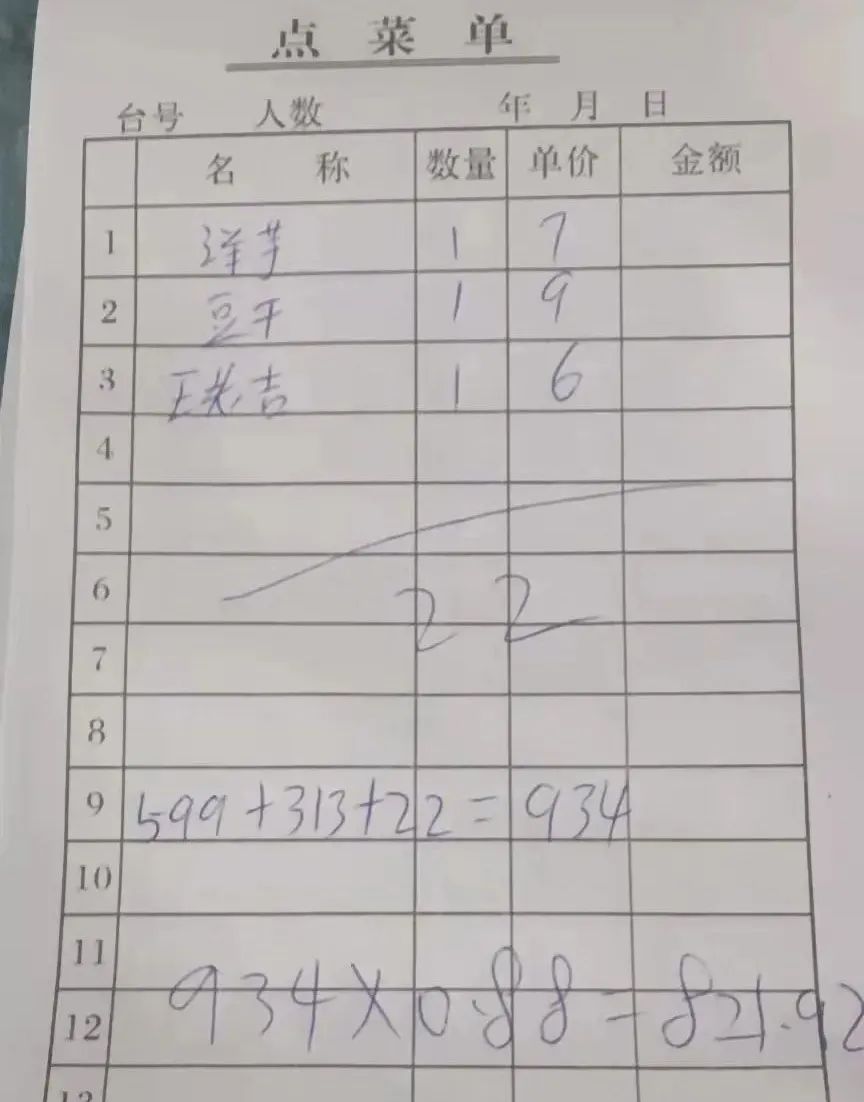 点 菜 单
台号 人数 年 月 日
名 称 数量 单价 金额
1 洋芋 1 7
2 豆干 1 9
3 王老吉 1 6
4
5
6
22
7
8
9 599+313+22=934
10
11
934×0.88=821.92
12
13